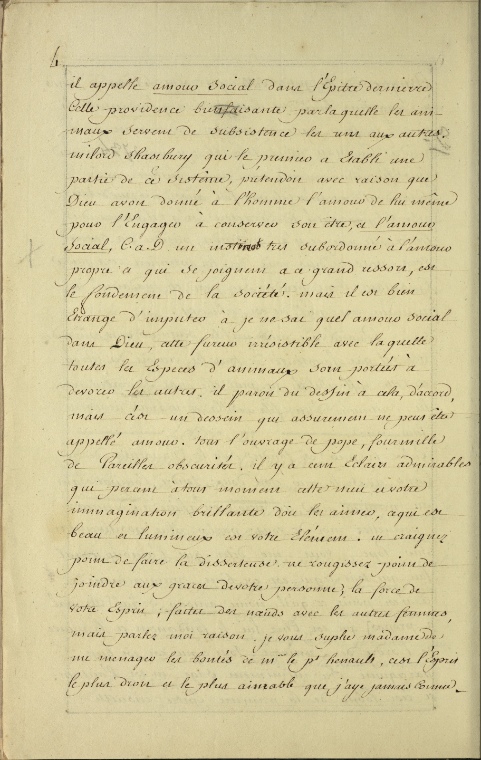 4
il appelle amour social dans l'Epitre dernierre
Cette providence bienfaisante par laquelle les ani-
maux servent de subsistence les uns aux autres.
milord shasbury qui le premier a Etabli une
partie de ce sistême, prétendoit avec raison que
Dieu avoit donné à l'homme l'amour de lui même
pour l'Engager à conserver son être, et l'amour
Social, C. a. D. un instinct tres subordonné à l'amour
propre et qui se joignent a ce grand ressort, est
le fondement de la société. mais il est bien
Etrange d'imputer à je ne sai quel amour social
dans Dieu, cette fureur irrésistible avec laquelle
toutes les Especes d'animaux sont portées à
devorer les autres. il paroit du dessin à cela, d'accord,
mais c'est un dessein qui assurement ne peut être
appellé amour. tout l'ouvrage de pope, fourmille
de Pareilles obscurités. il y a cent Eclairs admirables
qui percent à tout moment cette nuit et votre
immagination brillante doit les aimer, ce qui est
beau et lumineux est votre Elément. ne craignez
point de faire la disserteuse. ne rougissez point de
joindre aux graces de votre personne, la force de
votre Esprit; faites des nœuds avec les autres femmes,
mais parlez moi raison. je vous suplie madame de
me menager les bontés de mr le pt henault, c'est l'Esprit
le plus droit et le plus aimable que j'aye jamais connu.